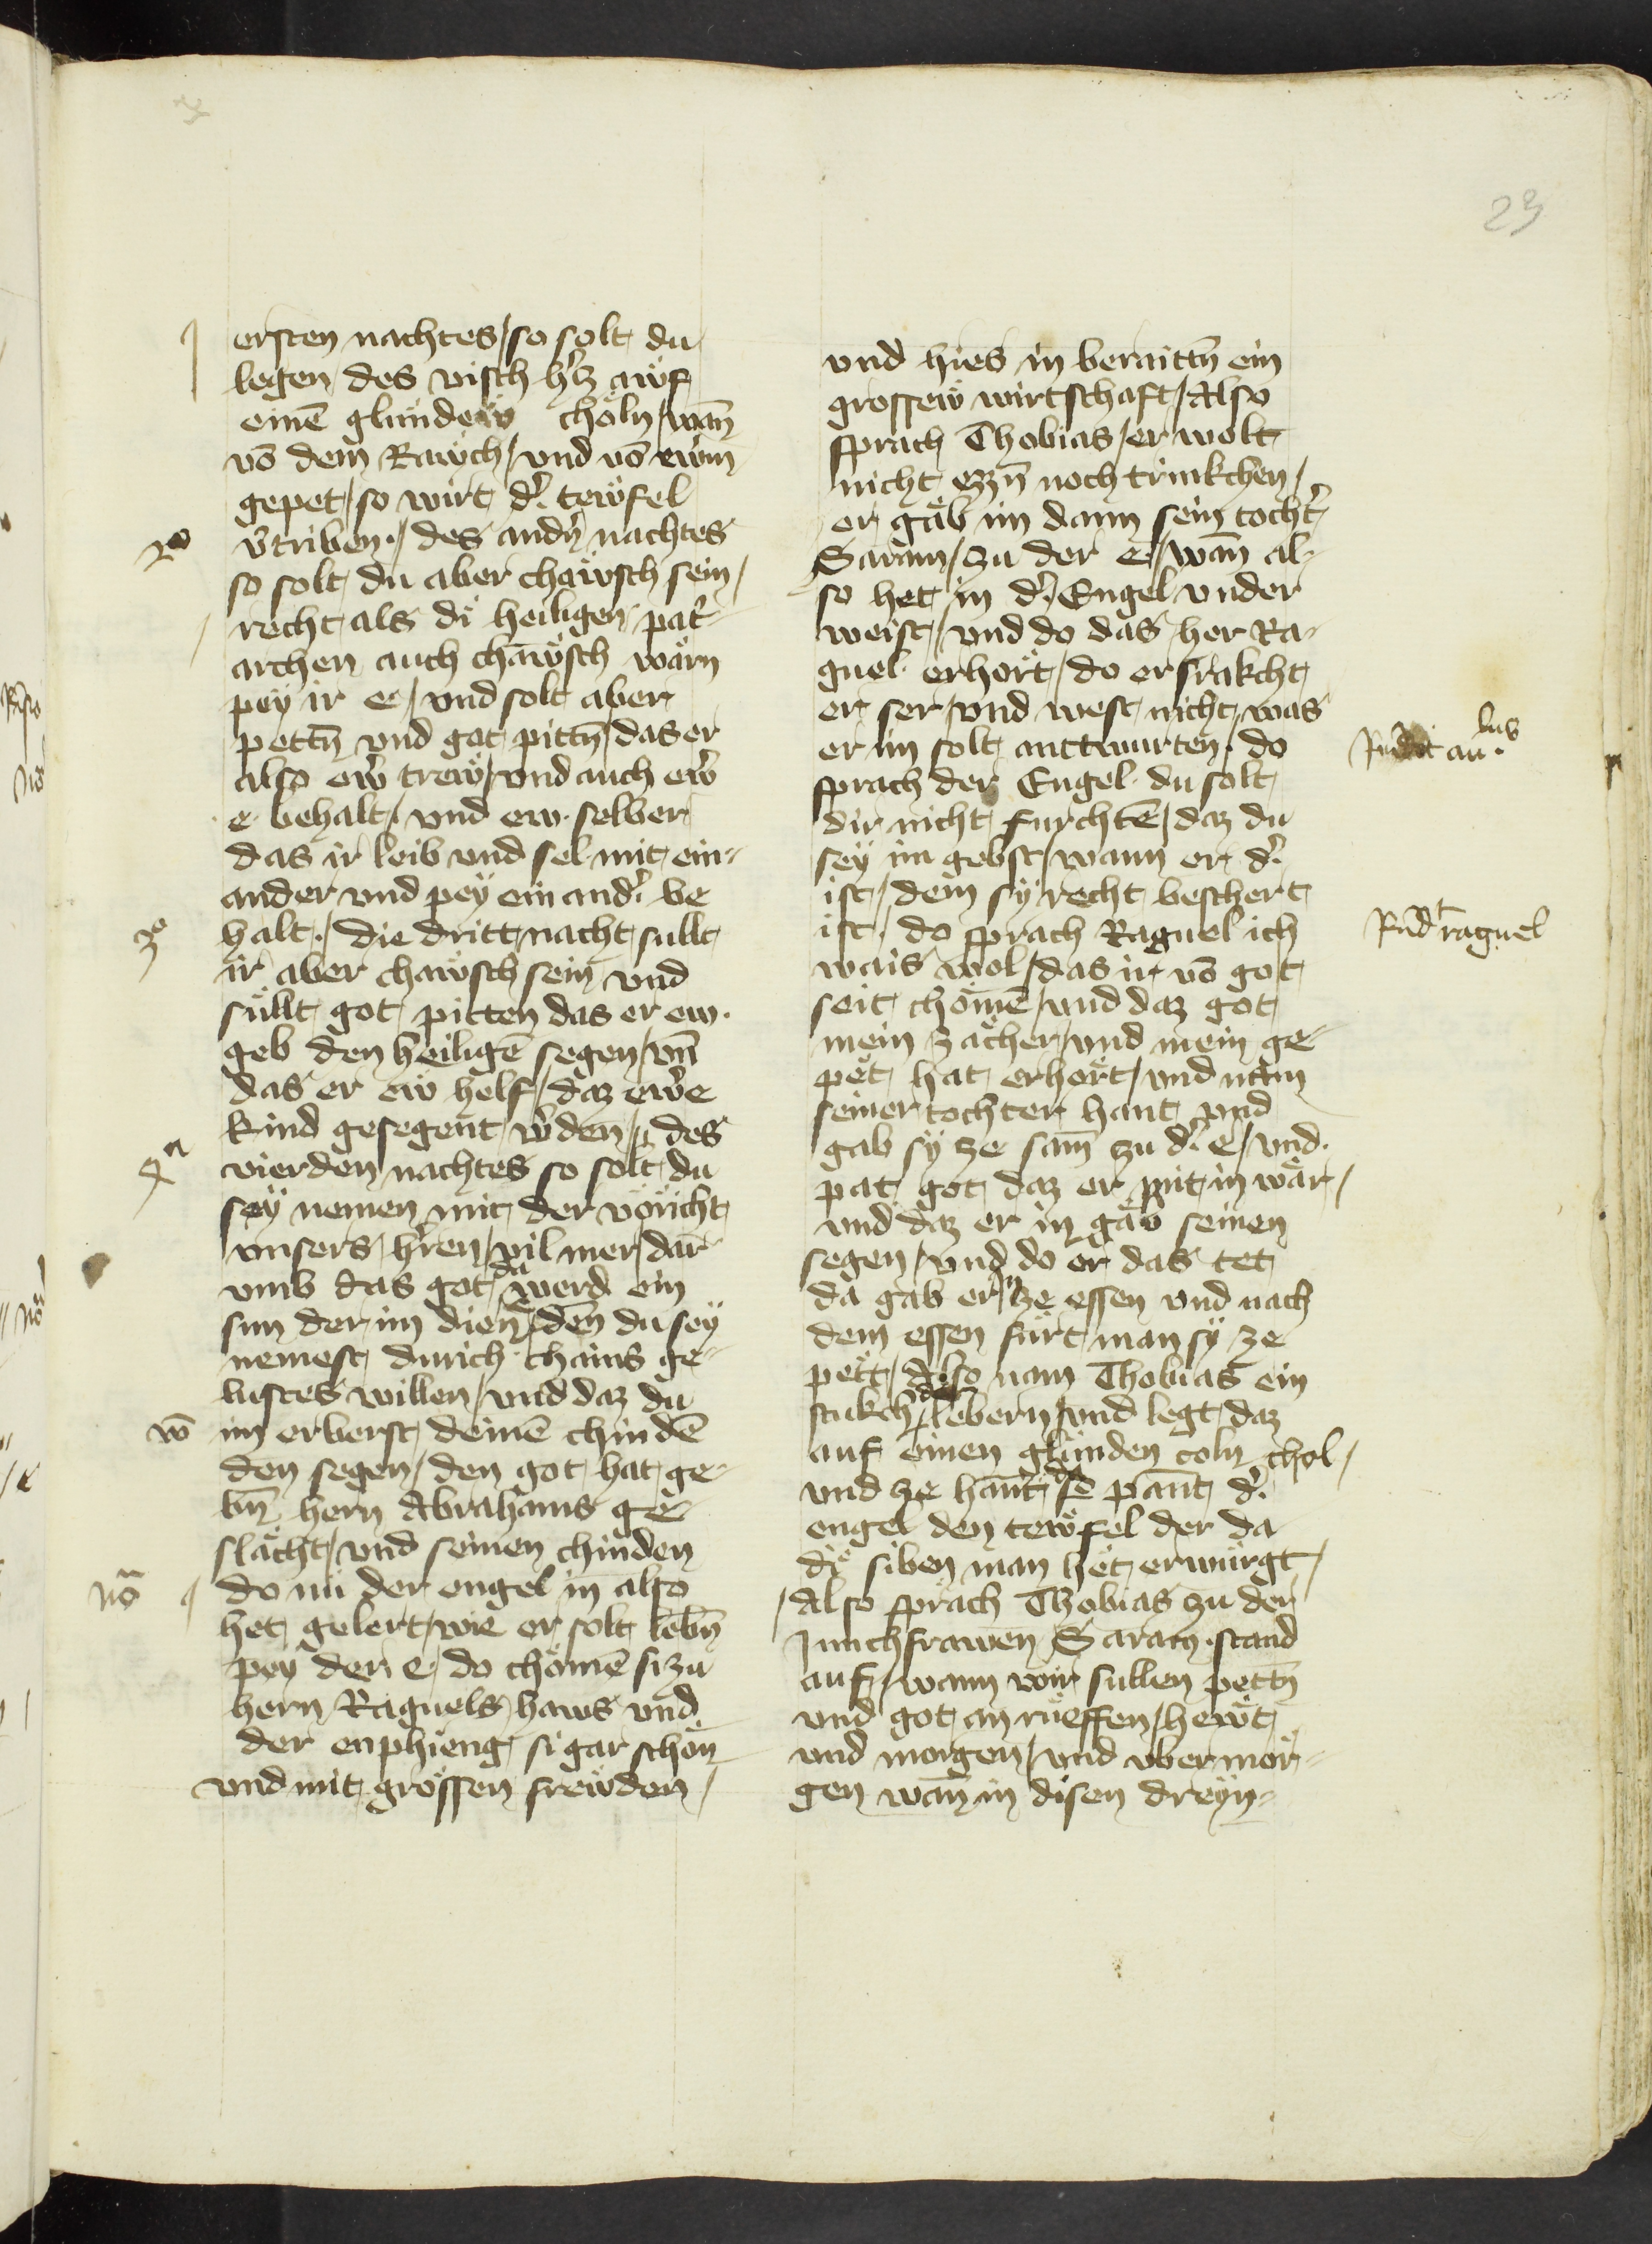 23
ersten nachtes / so solt du
legen des visch h'cz awf
einē glundew chöln / wan̄
vō dem Rawch / und vō ewrm
gepet / so wirt d'. tewfel
v'triben. / des andn̄ nachtes
so solt du aber chawsch sein /
recht als di heiligen pat'-
archen auch chawsch wärn
pey ir e / vnd solt aber
pettn̄ vnd got pittn̄ / das er
also ew' trew / vnd auch ew'
e behalt / vnd ew. selber
das ir leib vnd sel mit ein-
ander vnd pey ein and'. be
halt. / die dritt nacht sullt
ir aber chawsch sein vnd
süllt got pitten das er ew.
geb den heiligē segen / vn̄
das er ew helf / daz ew'e
kind gesegent w'den / des
vierden nachtes so solt du
sey nemen mit der voricht
vnsers h'ren / vil mer dar
vmb das got da werd ein
sun der im dien̄ / den du sey
nemest durich chains ge-
lustes willen / vnd daz du
im erberst deinē chindē
den segen / den got hat ge-
bn̄ hern Abrahams ge-
slächt / vnd seinen chinden
do nu der engel in also
het gelert / wie er solt lebn̄
pey der e / do chömē si zu
hern Raguels haws vnd
der enphieng si gar schon
vnd mit grossen frewden /
2º
3º
4ª
wō
nōª
vnd hies in beraittn̄ ein
grossew wirtschaft / Also
sprach Thobias / er wolt
nicht ezzn̄ noch trinkchen /
er gäb im dann sein tocht'
Saram / zu der e / wan̄ al-
so het in d'. Engel vnder
weist / vnd do das her Ra-
guel erhort / do ersrakcht
er ser / vnd west nicht was
er im solt anttwurten. do
sprach der Engel. du solt
dir nicht furchtē / daz du
sey im gebst / wann er d'.
ist / dem sy recht beschert
ist. do sprach Raguel ich
wais wol / das ir vō got
seit chömē / vnd daz got
mein zächer / vnd mein ge-
pet hat erhort / vnd nam
seiner tochter hant vnd
gab sy ze sam̄ zu d'. e / vnd.
pat got daz er mit in wär /
vnd daz er in gäb seinen
segen / vnd do er das tet
da gab er in ze essen vnd nach
dem essen fürt man sy ze
pett / Also nam Thobias ein
stukch der lebern / vnd legt daz
auf einen glunden coln chol /
vnd ze hant da pant d'.
engel den tewfel der da
di siben man het erwürgt /
Also sprach Thobias zu der
Junchfrawen Saram. stand
auf / wann wir sullen pettn̄
vnd got an rueffen / hewt
vnd morgen / vnd vbermor-
gen wan̄ in disen dreyn-
Rndt raguel